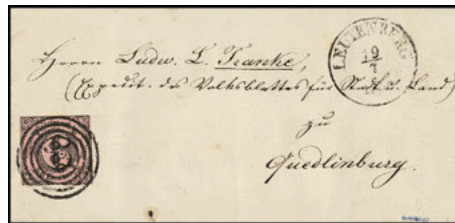 LEUTENBERG
19
7
Herrn Ludw. L. Franke,
(Expedit. des Volksblattes für Stadt u. Land)
zu
Quedlinburg.